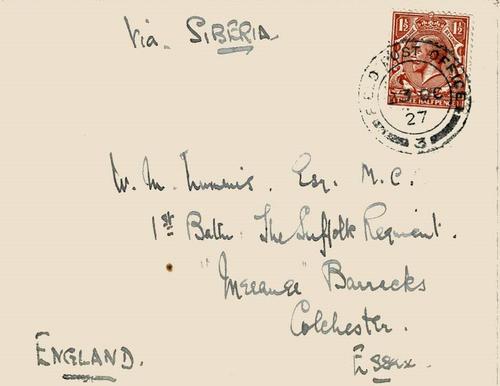 Via. SIBERIA
1½ 1½
THREE HALFPENCE
FIELD POST OFFICE
3 DE
27
3
W. M. Lummis. Esq. M.C.
1st Battn. The Suffolk Regiment.
"Meeanee" Barracks
Colchester.
Essex.
ENGLAND.